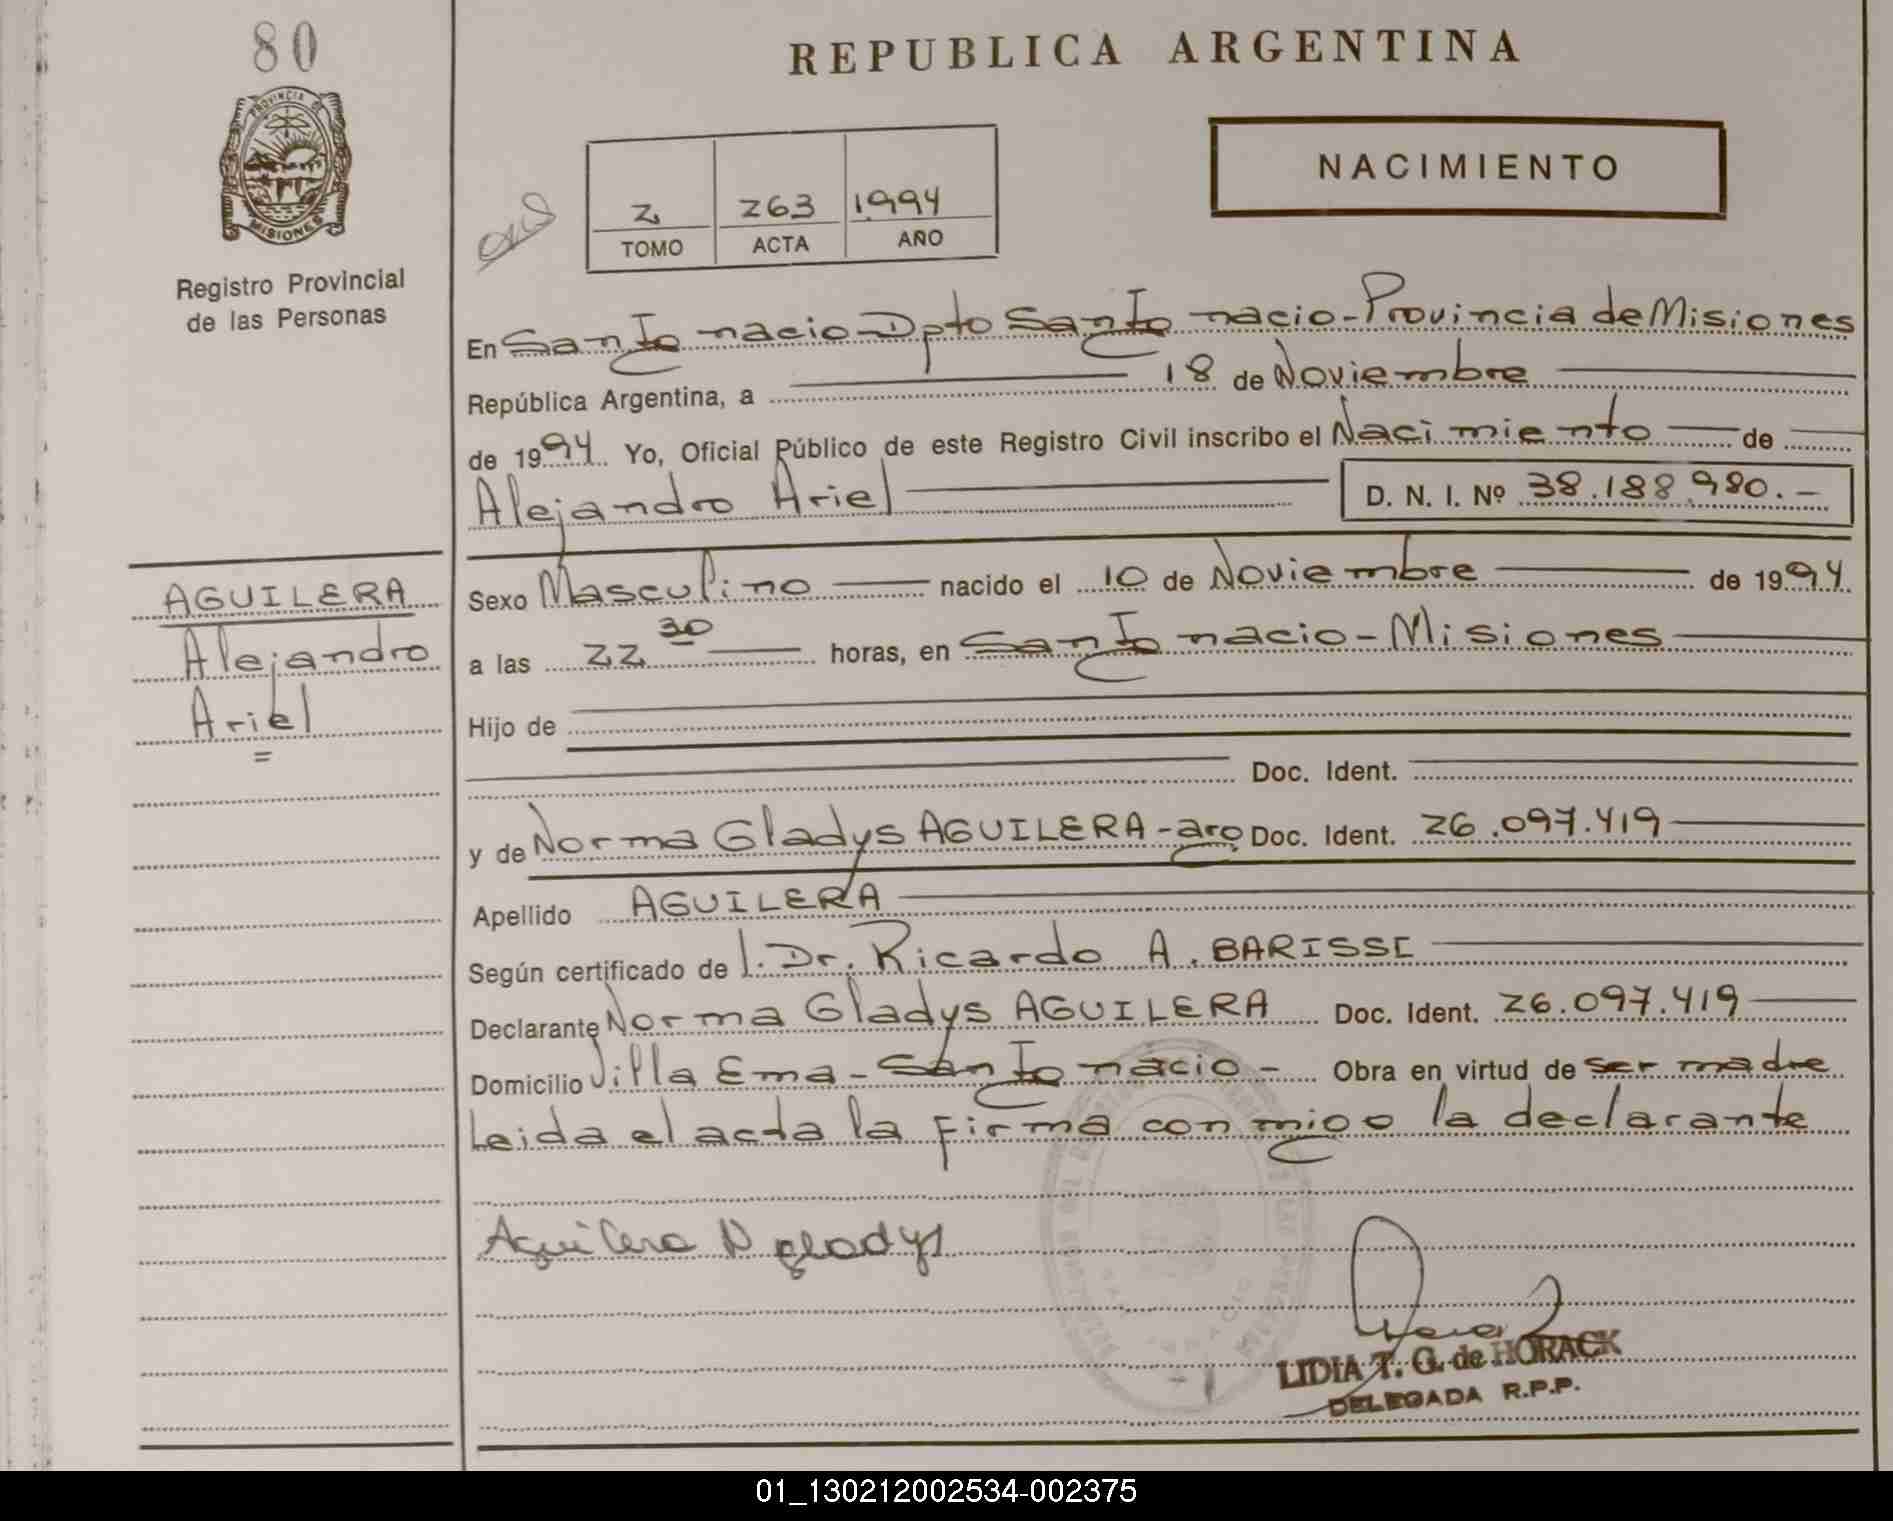 80
PROVINCIA DE
MISIONES
Registro Provincial
de las Personas
AGUILERA
Alejandro
Ariel
=
REPUBLICA ARGENTINA
NACIMIENTO
2 263 1994
TOMO ACTA AÑO
En San Ignacio - Dpto San Ignacio - Provincia de Misiones
República Argentina, a 18 de Noviembre
de 1994 Yo, Oficial Público de este Registro Civil inscribo el Nacimiento de
Alejandro Ariel D. N. I. Nº 38.188.980.-
Sexo Masculino nacido el 10 de Noviembre de 1994
a las 22 30 horas, en San Ignacio - Misiones
Hijo de
Doc. Ident.
y de Norma Gladys AGUILERA - arg. Doc. Ident. 26.097.419
Apellido AGUILERA
Según certificado de Dr. Ricardo A. BARISSI
Declarante Norma Gladys AGUILERA Doc. Ident. 26.097.419
Domicilio Villa Ema - San Ignacio - Obra en virtud de ser madre
Leida el acta la firma conmigo la declarante
Aguilera N gladys
LIDIA T. G. de HORACK
DELEGADA R.P.P.
01_130212002534-002375